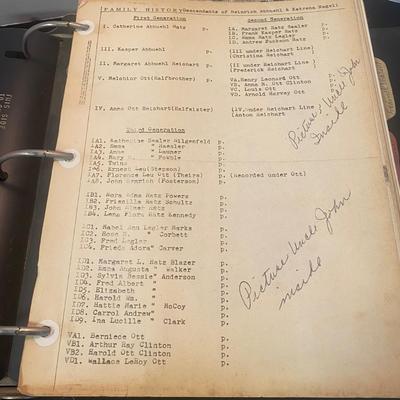 FAMILY HISTORY(Descendants of Heinrich Abbuehl & Katrena Nagel)
First Generation
Second Generation
I. Catherine Abbuehl Hatz p.
IA. Margaret Hatz Sealer p.
IB. Frank Kasper Hatz p.
IC. Emma Hatz Lagler p.
ID. Andrew Fuchson Hatz p.
II. Kasper Abbuehl
(III under Reichart Line)
(Christina Reichart
II. Margaret Abbuehl Reichart
(II under Reichart Line)
(Frederick Reichart
V. Melchior Ott(Halfbrother) p.
VA. Henry Leonard Ott p.
VB. Anna B. Ott Clinton p.
VC. Louis Ott p.
VD. Arnold Harvey Ott p.
IV. Anna Ott Reichart(Halfsister)
(IV. under Reichart Line)
(Anton Reichart
Picture Uncle John
inside
Third Generation
IA1. Sealer Hilgenfeld p.
IA2. Emma " Haesler p.
IA3. Anna " p.
IA4. Mary " Pevble p.
IA5. Twins p.
IA6. Ernest Leu(Stepson) p.
IA7. Florence Leu Ott (Theirs) p. (Recorded under Ott)
IA8. John Henrich (Fosterson) p.
IB1. Nora Edna Hatz Powers p.
IB2. Priscilla Hatz Schultz p.
IB3. John Elmer Hatz p.
IB4. Lena Flora Hatz Kennedy p.
IC1. Mabel Ann Legler Marks p.
IC2. Rose " Corbett p.
IC3. Fred Legler p.
IC4. Frieda Adora" Carver p.
Picture Uncle John
inside
ID1. Margaret L. Hatz Blazer p.
ID2. Emma Augusta " Walker p.
ID3. Sylvia Bessie" Anderson p.
ID4. Fred Albert " p.
ID5. Elizabeth " p.
ID6. Harold Wm. " p.
ID7. Hattie Marie " McCoy p.
ID8. Carrol Andrew" p.
ID9. Ina Lucille " Clark p.
VA1. Berniece Ott p.
VB1. Arthur Ray Clinton p.
VB2. Harold Ott Clinton p.
VD1. Wallace LeRoy Ott p.